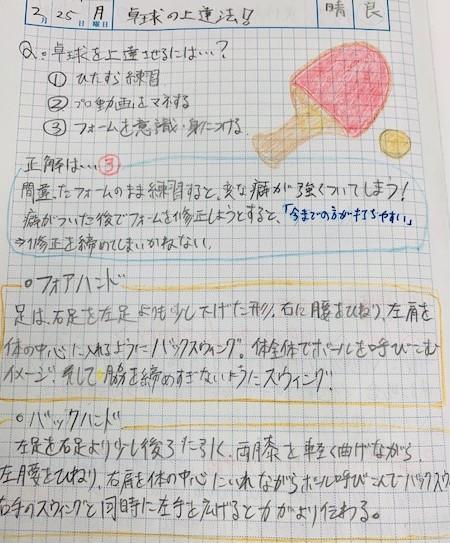 2月25日月曜日 卓球の上達法!! 晴 良
Q。卓球を上達させるには…?
① ひたすら練習
② プロ動画をマネする
③ フォームを意識・身につける
正解は…③
間違ったフォームのまま練習すると、変な癖が強くついてしまう!
癖がついた後でフォームを修正しようとすると、「今までの方が打ちやすい」
⇒修正を締めてしまいかねない。
○フォアハンド
足は、右足を左足よりも少し下げた形。右に腰をひねり、左肩を
体の中心に入れるようにバックスウィング。体全体でボールを呼びこむ
イメージ!そして脇を締めすぎないようにスウィング!
○バックハンド
左足を右足より少し後ろに引く、両膝を軽く曲げながら、
左腰をひねり、右肩を体の中心にいれながらボール呼び込んでバックスウ
右手のスウィングと同時に左手を広げると力がより伝わる。